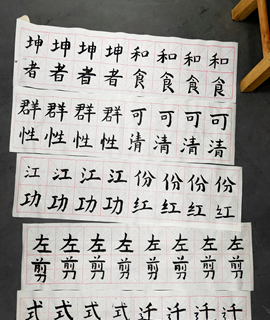 坤坤坤坤和和和和
者者者者食食食食
群群群群可可可可
性性性性清清清清
江江江江份份份份
功功功功红红红红
左左左左左左左左
剪剪剪剪剪剪剪剪
式式式式迁迁迁迁